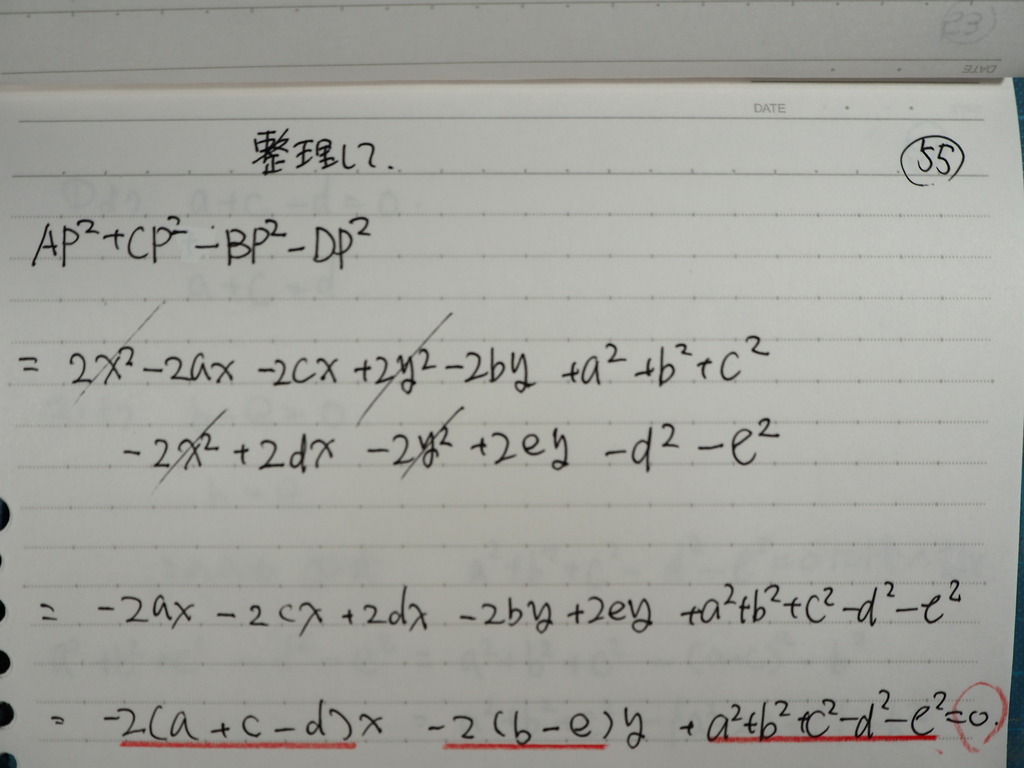 DATE
DATE
整理して.
55
AP²+CP²-BP²-DP²
= 2x²-2ax-2cx+2y²-2by+a²+b²+c²
-2x²+2dx-2y²+2ey-d²-e²
= -2ax-2cx+2dx-2by+2ey+a²+b²+c²-d²-e²
= -2(a+c-d)x-2(b-e)y+a²+b²+c²-d²-e²=0.